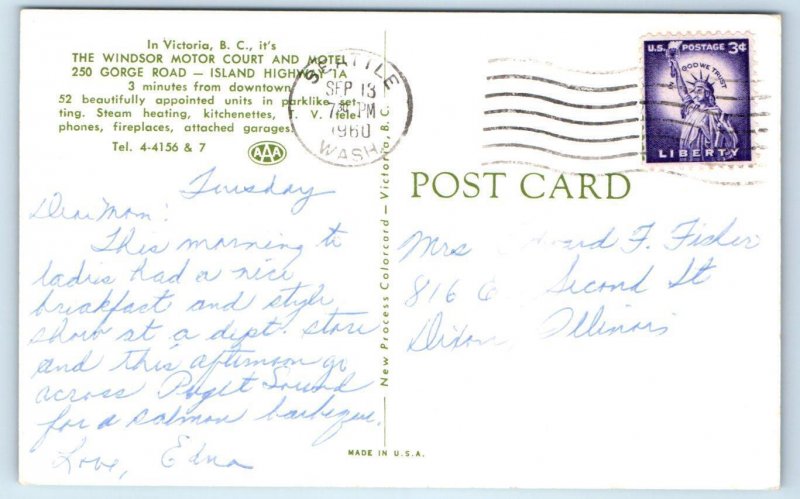 In Victoria, B. C., it's
THE WINDSOR MOTOR COURT AND MOTEL
250 GORGE ROAD — ISLAND HIGHWAY 1A
3 minutes from downtown
52 beautifully appointed units in parklike set-
ting. Steam heating, kitchenettes, T. V., tele-
phones, fireplaces, attached garages.
Tel. 4-4156 & 7
AAA
SEATTLE
SEP 13
7 30 PM
1960
WASH.
U.S. POSTAGE 3¢
IN GOD WE TRUST
LIBERTY
POST CARD
New Process Colorcard — Victoria, B. C.
Tuesday
Dear Mom:
This morning te
ladies had a nice
breakfast and style
show at a dept. store
and this afternoon go
across Puget Sound
for a salmon barbeque.
Love, Edna
Mrs Edward F. Fisher
816 E. Second St
Dixon, Illinois
MADE IN U.S.A.